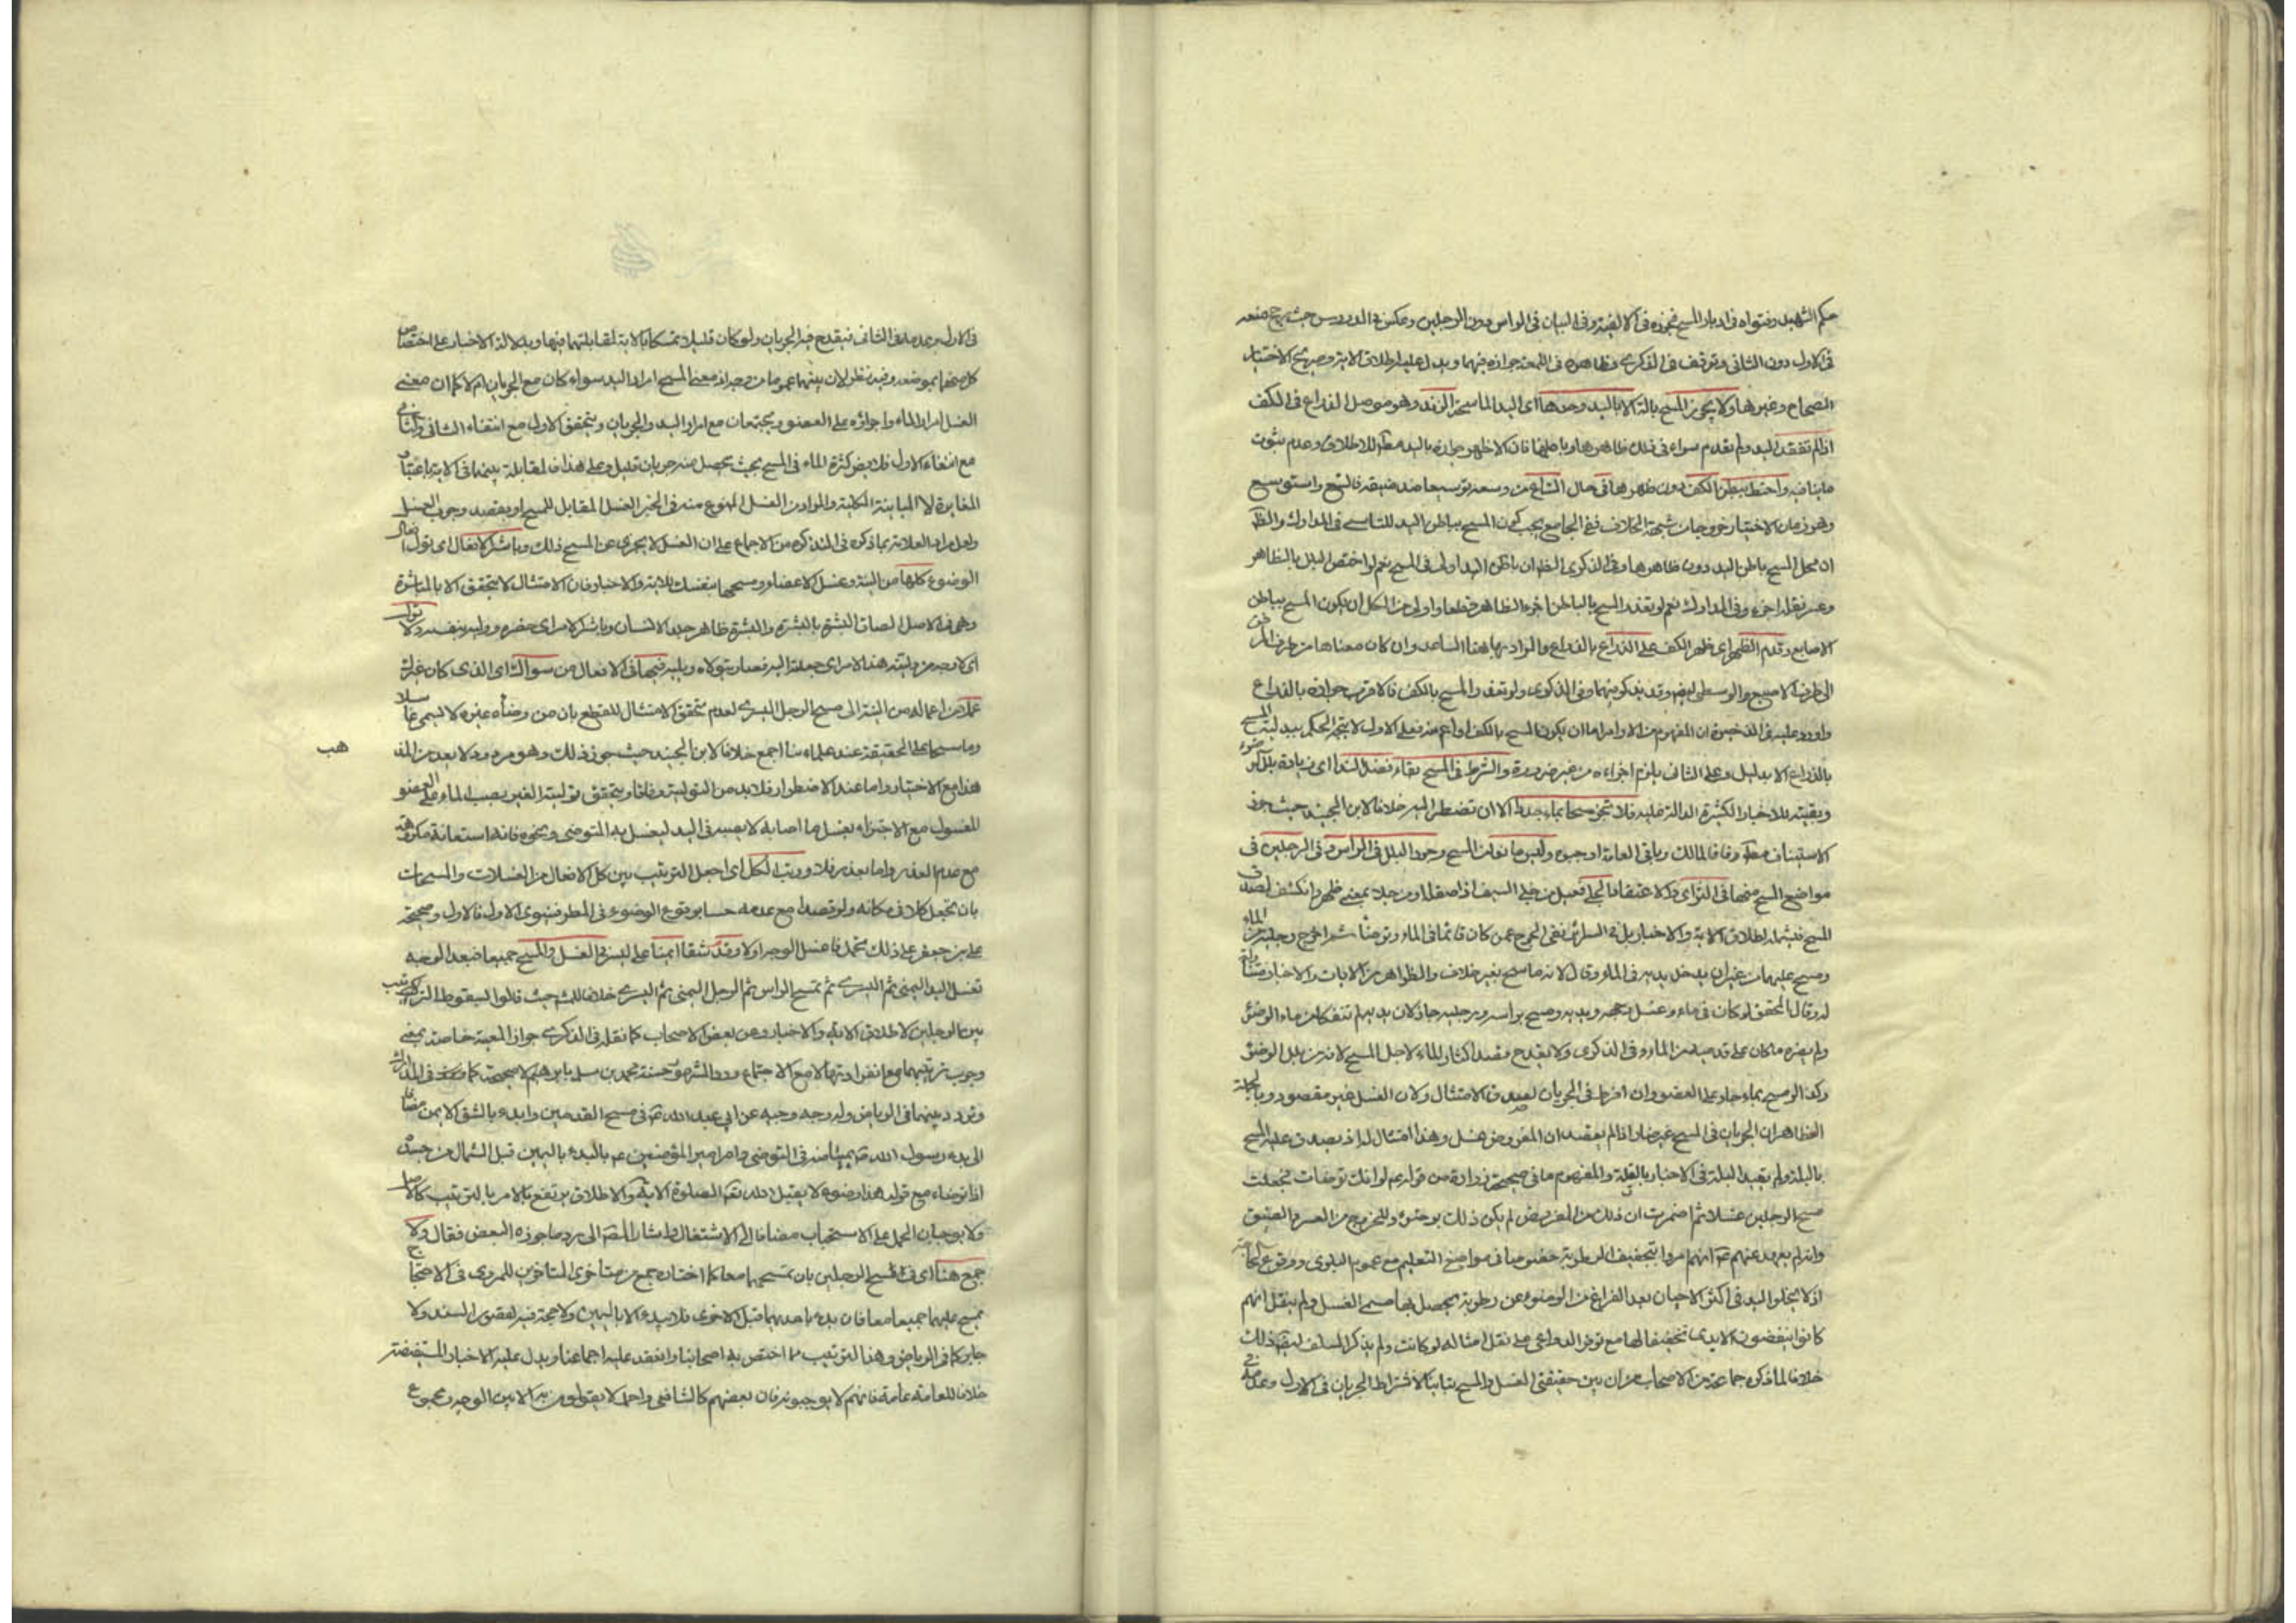 حكم الشهيد وفتواه في ادبار المسح فجوزه في الالفية وفي البيان في الراس دون الرجلين وعكس في الدروس حيث رجح منعه
في الاول دون الثاني وتوقف في الذكرى وظاهره في اللمعة جوازه فيهما ويدل عليه اطلاق الاية وصريح الاخبار
الصحاح وغيرها ولا يجوز المسح بالة الا باليد وحدها اى اليد الماسحة الزند وهو موصل الذراع في الكف
اذا لم تفقد اليد ولم تعدم سواء في ذلك ظاهرها وباطنها فان الاظهر جوازه باليد مطلقا للاطلاق وعدم ثبوت
ما ينافيه واحتط ببطن الكف دون ظهرها في حال اتساع من وسعه توسيعا ضد ضيقه فاتسع واستوسع
وهو زمان الاختيار خروجا من شبهة الخلاف ففي الجامع يجب كون المسح بباطن اليد للتاسي في المدارك والظ
ان محل المسح باطن اليد دون ظاهرها وفي الذكرى الظ ان باطن اليد اولى في المسح نعم لو اختص البلل بالظاهر
وعسر نقله اجزء وفي المدارك نعم لو تعذر المسح بالباطن اجزء الظاهر قطعا واولى من الكل ان يكون المسح بباطن
الاصابع وقدم الظهر اى ظهر الكف على الذراع بالذراع والمراد بها هنا الساعد وان كان معناها من طرف المرفق
الى طرف الاصبع الوسطى ايض وقد يذكر فيهما وفي الذكرى ولو تعذر المسح بالكف فالاقرب جوازه بالذراع
واورد عليه في الذخيرة ان المفهوم من الاوامر اما ان يكون المسح بالكف او اعم منه فعلى الاول لا يتجه الحكم ببدلية المسح
بالذراع الا بدليل وعلى الثاني يلزم اجزاءه من غير ضرورة والشرط في المسح بقاء فضل لندا اى زيادة بلل الوضوء
وبقيته للاخبار الكثيرة الدالة عليه فلا تجز مسحا بماء جددا الا ان تضطر اليه خلافا لابن الجنيد حيث جوز
الاستيناف مطلقا وفاقا لمالك وباقي العامة اوجبوه وليس مانعا من المسح وجود البلل في الراس وفي الرجلين في
مواضع المسح منها في التراى ولا اعتقاد الجلى فعيل من جلى السيف اذا صقله او من جلا بمعنى ظهر وانكشف لصدق
المسح فيشمله اطلاق الاية والاخبار بل في السرائر نفى الحرج عمن كان قائما في الماء وتوضأ ثم اخرج رجليه من الماء
ومسح عليهما من غير ان يدخل يديه في الماء وقال لانه ماسح بغير خلاف والظواهر من الايات والاخبار متناولة
له وقال المحقق لو كان في ماء وغسل وجهه ويديه ومسح براسه ورجليه جاز لان يديه لم تنفكا من ماء الوضوء
ولم يضره ما كان على قدميه من الماء وفي الذكرى ولا يقدح قصد اكثار الماء لاجل المسح لانه من بلل الوضوء
وكذا لو مسح بماء جار على العضو وان افرط في الجريان لصدق الامتثال ولان الغسل غير مقصود وبالجملة
الظاهر ان الجريان في المسح غير ضار اذا لم يعتقد ان المفروض غسل وهذا امتثال له اذ يصدق عليه المسح
بالبلة ولم يقيد البلة في الاخبار بالقلة والمفهوم ما في صحيحة زرارة من قوله ع لو انك توضأت فجعلت
مسح الرجلين غسلا ثم اضمرت ان ذلك من المفروض لم يكن ذلك بوضوء وللتحرج من العسر والضيق
وانه لم يعهد عنهم ع انهم امروا بتجفيف الرطوبة خصوصا في مواضع التعليم مع عموم البلوى ووقوع الحاجة
اذ لا يخلو اليد في اكثر الاحيان بعد الفراغ من الوضوء عن رطوبة يحصل بها مسمى الغسل ولم ينقل انهم
كانوا ينفضون الايدى تخفيفا لها مع توفر الدواعي على نقل امثاله لو كانت ولم يذكر السلف لبقية ذلك
خلافا لما ذكره جماعة من الاصحاب من ان بين حقيقتي الغسل والمسح تباينا لاشتراط الجريان في الاول وعدمه
في الاول بر عدمه في الثاني فيقدح فيه الجريان ولو كان قليلا تمسكا بالاية لمقابلتهما فيها وبدلالة الاخبار على اختصاص
كل منهما بموضعه وفيه نظر لان بينهما عموما من وجه اذ معنى المسح امرار اليد سواء كان مع الجريان ام لا كما ان معنى
الغسل امرار الماء واجراؤه على العضو ويجتمعان مع امرار اليد والجريان ويتحقق الاول مع انتفاء الثاني والثاني
مع انتفاء الاول فلا يضر كثرة الماء في المسح بحيث يحصل منه جريان قليل وعلى هذا فالمقابلة بينهما في الاية باعتبار
المغايرة لا المباينة الكلية والمراد من الغسل الممنوع منه في الخبر الغسل المقابل للمسح او بقصد وجوب الغسل
ولعل مراد العلامة بما ذكره في التذكرة من الاجماع على ان الغسل لا يجزى عن المسح ذلك وباشر الافعال اى تول افعال
الوضوء كلها من النية وغسل الاعضاء ومسحها بنفسك للاية والاخبار فان الامتثال لا يتحقق الا بالمباشرة
وهي في الاصل الصاق البشرة بالبشرة والبشرة ظاهر جلد الانسان وباشر الامر اى حضره ووليه بنفسه ولا تول
اى لا وجه من وليته هذا الامر اى جعلته اليه فصار يتولاه ويليه فيها في الافعال من سواك اى الذي كان غيرك
عملا من اعماله من النية الى مسح الرجل اليسرى لعدم تحقق الامتثال للقطع بان من وضأه غيره لا يسمى غاسلا
وماسحا على الحقيقة عند علماءنا اجمع خلافا لابن الجنيد حيث جوز ذلك وهو مردود لا بعد من المذهب
هذا مع الاختيار واما عند الاضطرار فلا بد من التولية وفاقا ويتحقق تولية الغير بصب الماء على العضو
المغسول مع الاجتزاء بغسل ما اصابه لا بصبه في اليد ليغسل به المتوضى ونحوه فانه استعانة مكروهة
مع عدم العذر واما بعذر فلا ورتب الكل اى اجعل الترتيب بين كل الافعال من الغسلات والمسحات
بان تجعل كلا في مكانه ولو قصدا مع عدمه حسا بوقوع الوضوء في المطر فينوى الاول فالاول وصحيحة
على بن جعفر على ذلك تحمل فاغسل الوجه اولا وقدم شقا ايمنا على اليسرى في الغسل والمسح جميعا ضع بعد الوجه
تغسل اليد اليمنى ثم اليسرى ثم تمسح الراس ثم الرجل اليمنى ثم اليسرى خلافا لثلة حيث قالوا بسقوط الترتيب
بين الرجلين لاطلاق الاية والاخبار وعن بعض الاصحاب كما نقله في الذكرى جواز المعية خاصة بمعنى
وجوب ترتيبهما مع انفرادتهما لا مع الاجتماع ورد الشرطين حسنة محمد بن مسلم بابراهيم لا صحيحة كما وقعت في المدارك
وتردد بينهما في الرياض وله وجه وجيه عن ابي عبد الله ع في مسح القدمين وابدء بالشق الايمن مضافا
الى بدء رسول الله ص بميامنه في التوضى وامر امير المؤمنين ع بالبدء باليمين قبل الشمال من جسده
اذا توضاء مع قوله هذا وضوء لا يقبل الله تعم الصلوة الا به والاطلاق يرتفع بالامر بالترتيب كالاصل
ولا يوجبان الحمل على الاستحباب مضافا الى الاشتغال واشار المص الى رد ما جوزه البعض فقال ولا
جمع هنا اى في المسح الرجلين بان تمسحهما معا كما اختاره جمع من متأخرى المتاخرين للمروى في الاحتجاج
يمسح عليهما جميعا معا فان بدء باحدهما قبل الاخرى فلا يبدء الا باليمين ولا حجة فيه لقصور السند ولا
جابر كما في الرياض وهذا الترتيب مما اختص به اصحابنا وانعقد عليه اجماعنا ويدل عليه الاخبار المستفيضة
خلافا للعامة عامة فانهم لا يوجبونه فان بعضهم كالشافعي واحمد لا يقولون به الا بين الوجه ومجموع
هب